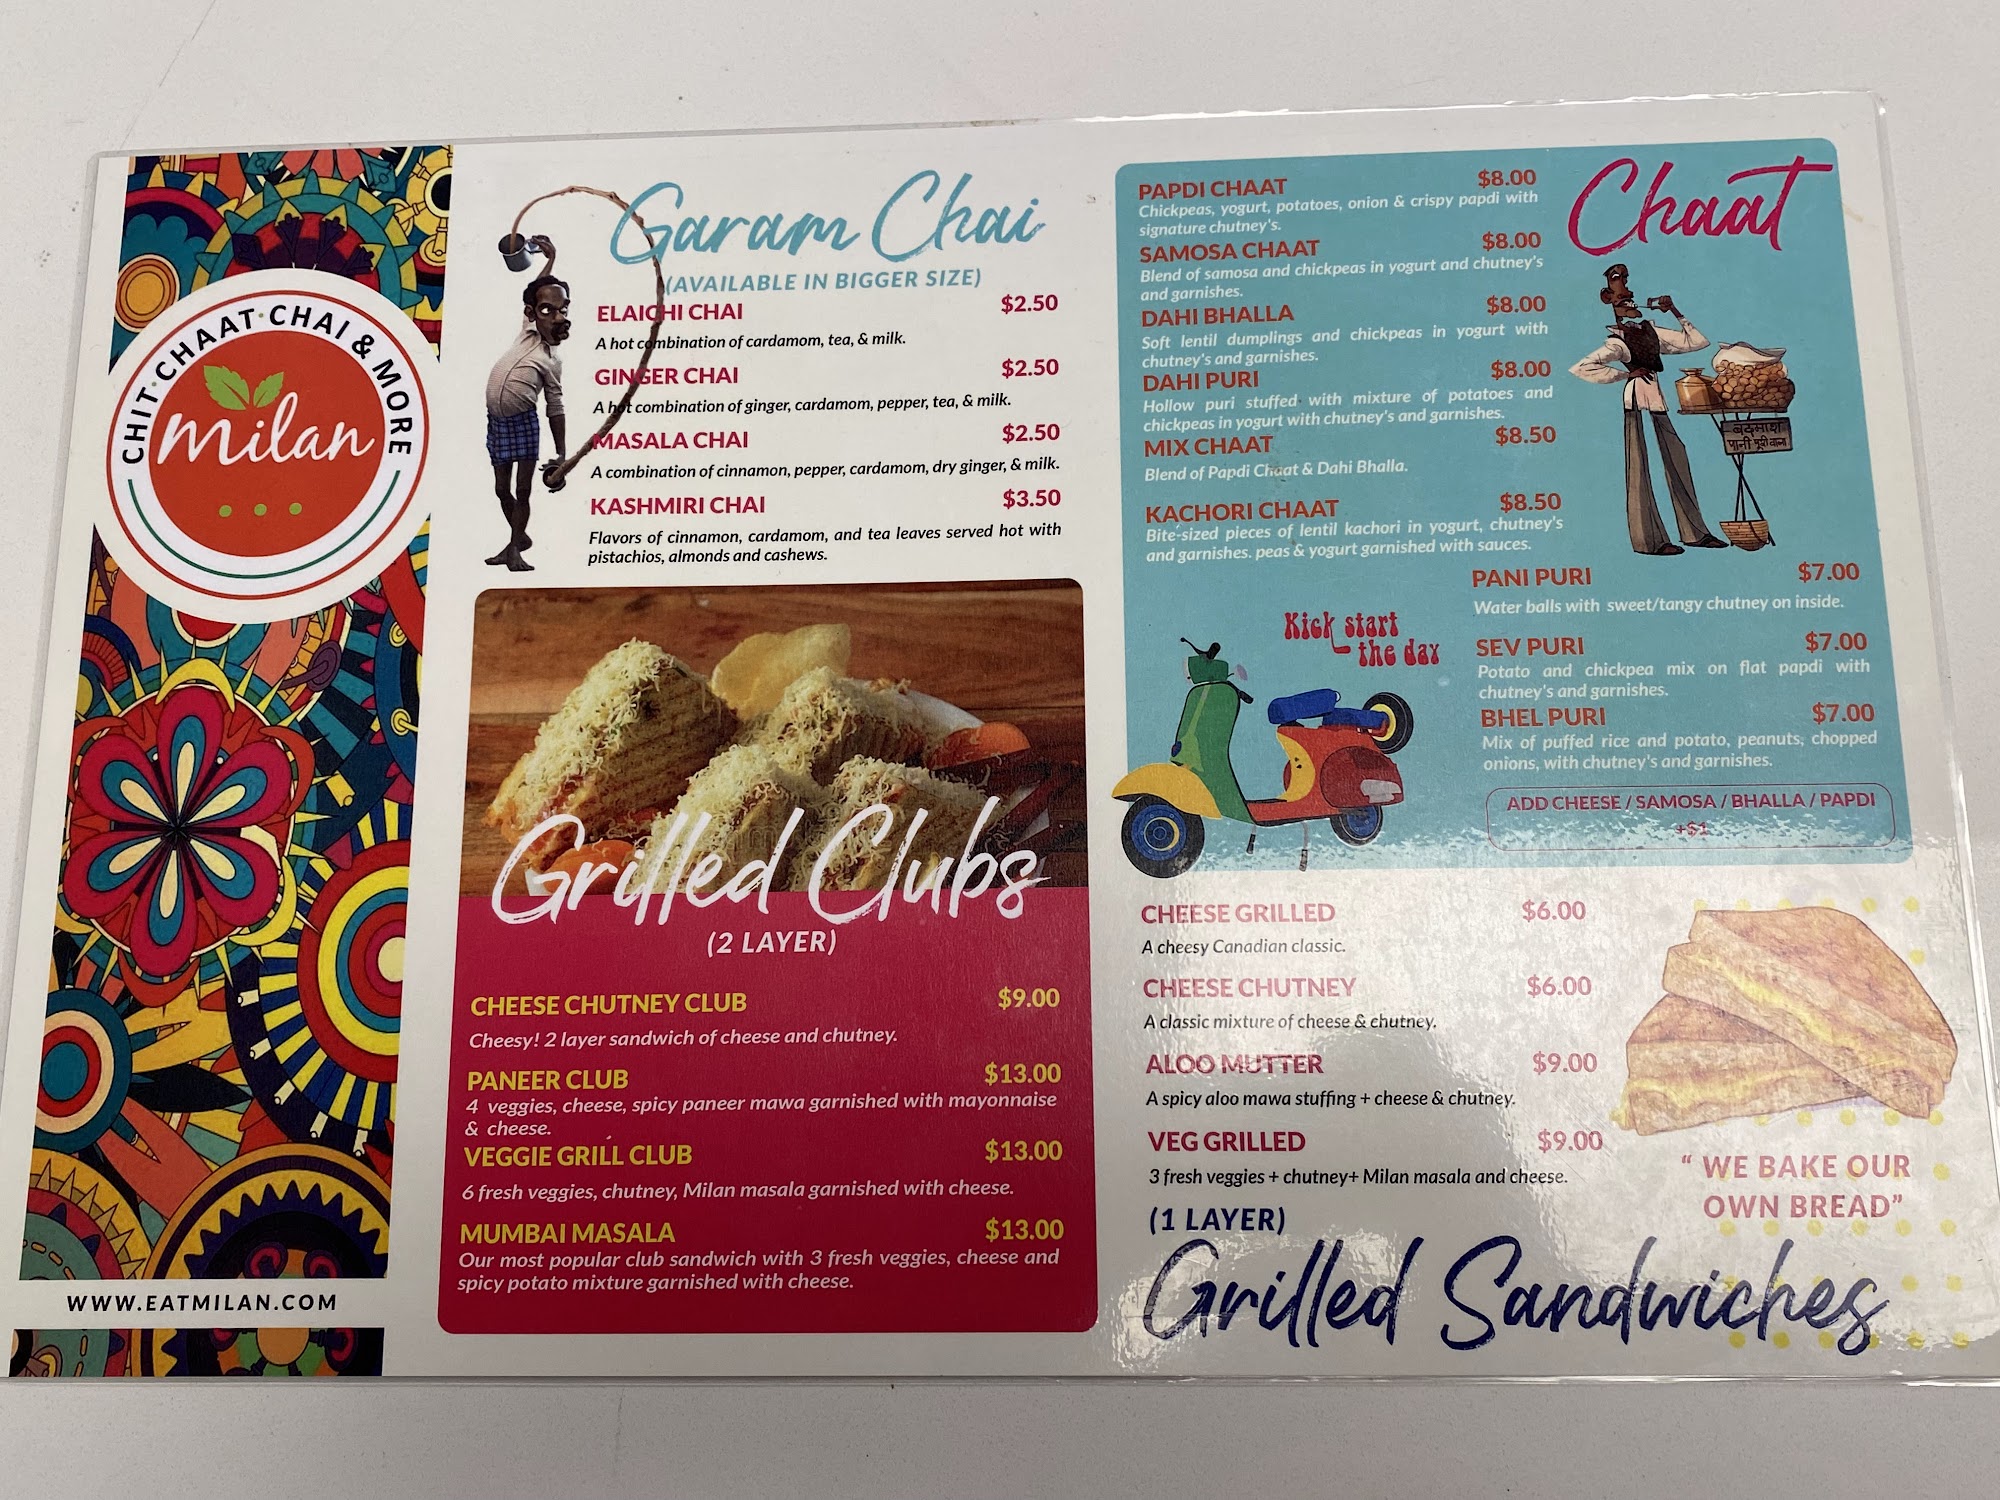 CHIT·CHAAT·CHAI & MORE
milan
WWW.EATMILAN.COM
Garam Chai
(AVAILABLE IN BIGGER SIZE)
ELAICHI CHAI $2.50
A hot combination of cardamom, tea, & milk.
GINGER CHAI $2.50
A hot combination of ginger, cardamom, pepper, tea, & milk.
MASALA CHAI $2.50
A combination of cinnamon, pepper, cardamom, dry ginger, & milk.
KASHMIRI CHAI $3.50
Flavors of cinnamon, cardamom, and tea leaves served hot with
pistachios, almonds and cashews.
Grilled Clubs
(2 LAYER)
CHEESE CHUTNEY CLUB $9.00
Cheesy! 2 layer sandwich of cheese and chutney.
PANEER CLUB $13.00
4 veggies, cheese, spicy paneer mawa garnished with mayonnaise
& cheese.
VEGGIE GRILL CLUB $13.00
6 fresh veggies, chutney, Milan masala garnished with cheese.
MUMBAI MASALA $13.00
Our most popular club sandwich with 3 fresh veggies, cheese and
spicy potato mixture garnished with cheese.
Chaat
PAPDI CHAAT $8.00
Chickpeas, yogurt, potatoes, onion & crispy papdi with
signature chutney's.
SAMOSA CHAAT $8.00
Blend of samosa and chickpeas in yogurt and chutney's
and garnishes.
DAHI BHALLA $8.00
Soft lentil dumplings and chickpeas in yogurt with
chutney's and garnishes.
DAHI PURI $8.00
Hollow puri stuffed with mixture of potatoes and
chickpeas in yogurt with chutney's and garnishes.
MIX CHAAT $8.50
Blend of Papdi Chaat & Dahi Bhalla.
KACHORI CHAAT $8.50
Bite-sized pieces of lentil kachori in yogurt, chutney's
and garnishes. peas & yogurt garnished with sauces.
बदमाश
पानी पूरी वाला
PANI PURI $7.00
Water balls with sweet/tangy chutney on inside.
Kick start
the day
SEV PURI $7.00
Potato and chickpea mix on flat papdi with
chutney's and garnishes.
BHEL PURI $7.00
Mix of puffed rice and potato, peanuts, chopped
onions, with chutney's and garnishes.
ADD CHEESE / SAMOSA / BHALLA / PAPDI
+$1
CHEESE GRILLED $6.00
A cheesy Canadian classic.
CHEESE CHUTNEY $6.00
A classic mixture of cheese & chutney.
ALOO MUTTER $9.00
A spicy aloo mawa stuffing + cheese & chutney.
VEG GRILLED $9.00
3 fresh veggies + chutney+ Milan masala and cheese.
" WE BAKE OUR
OWN BREAD"
(1 LAYER)
Grilled Sandwiches